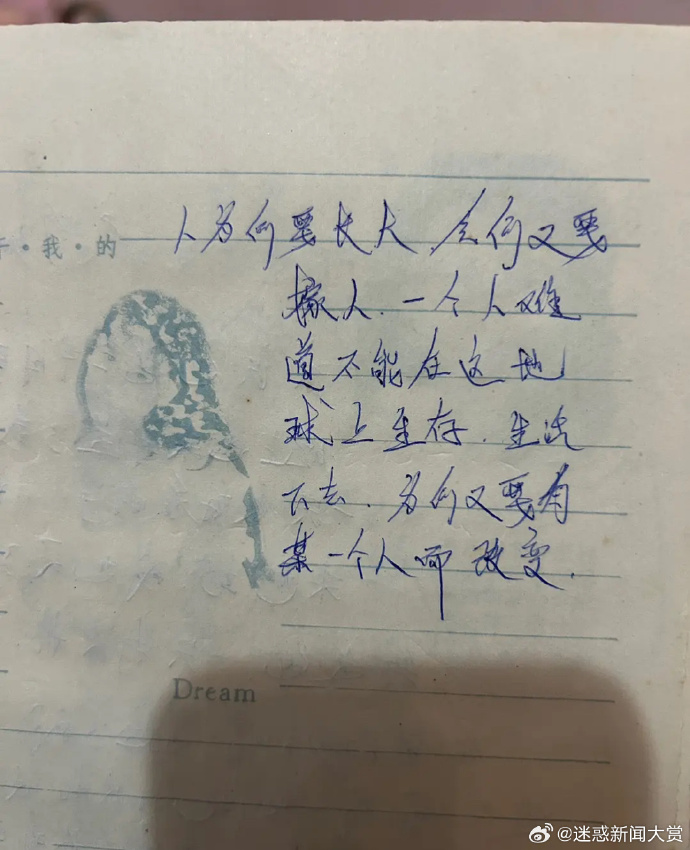 人为何要长大,为何又要
嫁人.一个人难
道不能在这地
球上生存.生活
下去.为何又要有
某一个人而改变.
于·我·的
Dream
@迷惑新闻大赏